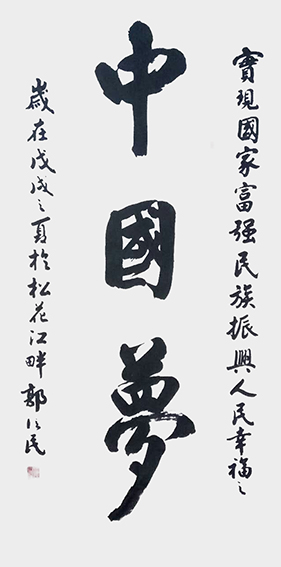 實現國家富强民族振興人民幸福之
中國夢
歲在戊戌之夏於松花江畔郭民